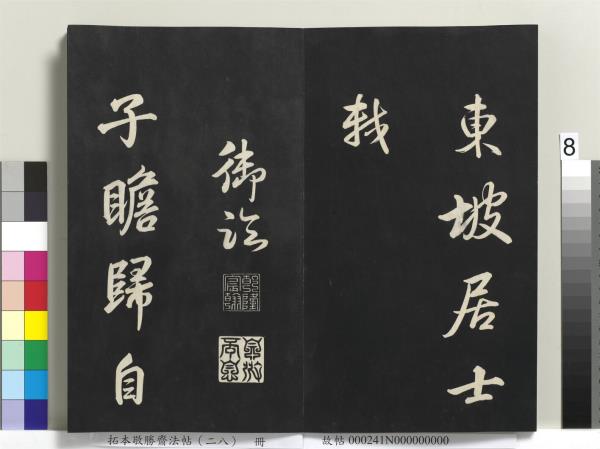 東坡居士
軾
御臨
子瞻歸自
拓本敬勝齋法帖(二八) 冊
故帖 000241N000000000
8